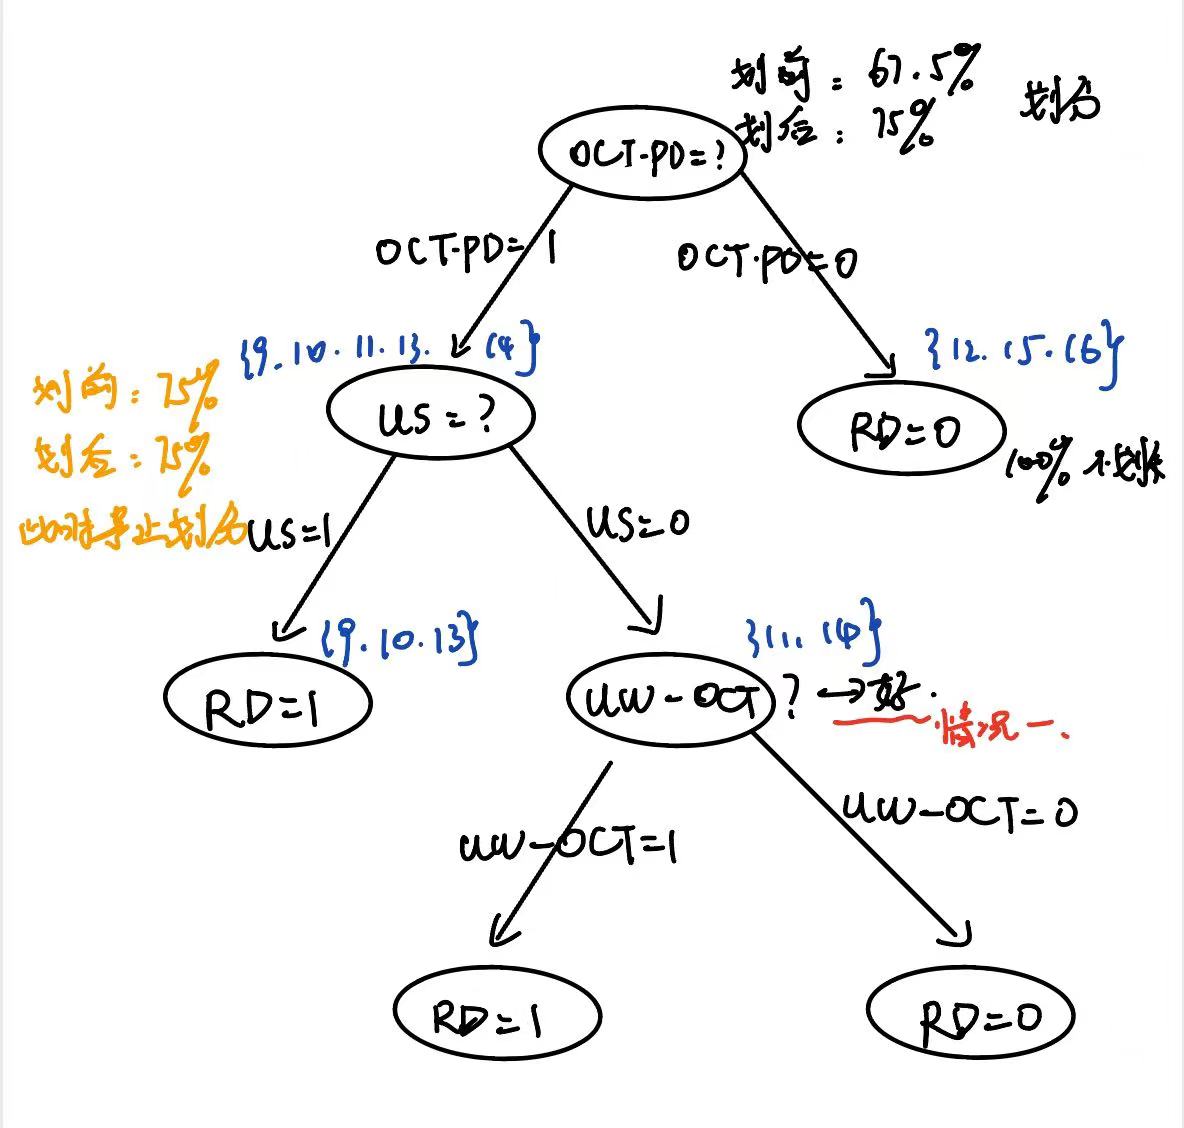 划前：67.5%
划后：75%
划分
OCT-PD=?
OCT-PD=1
OCT-PD=0
{9.10.11.13.14}
{12.15.16}
划前：75%
划后：75%
此时停止划分
US=?
RD=0
100% 不划分
US=1
US=0
{9.10.13}
{11.14}
RD=1
UW-OCT?→好.
情况一、
UW-OCT=1
UW-OCT=0
RD=1
RD=0